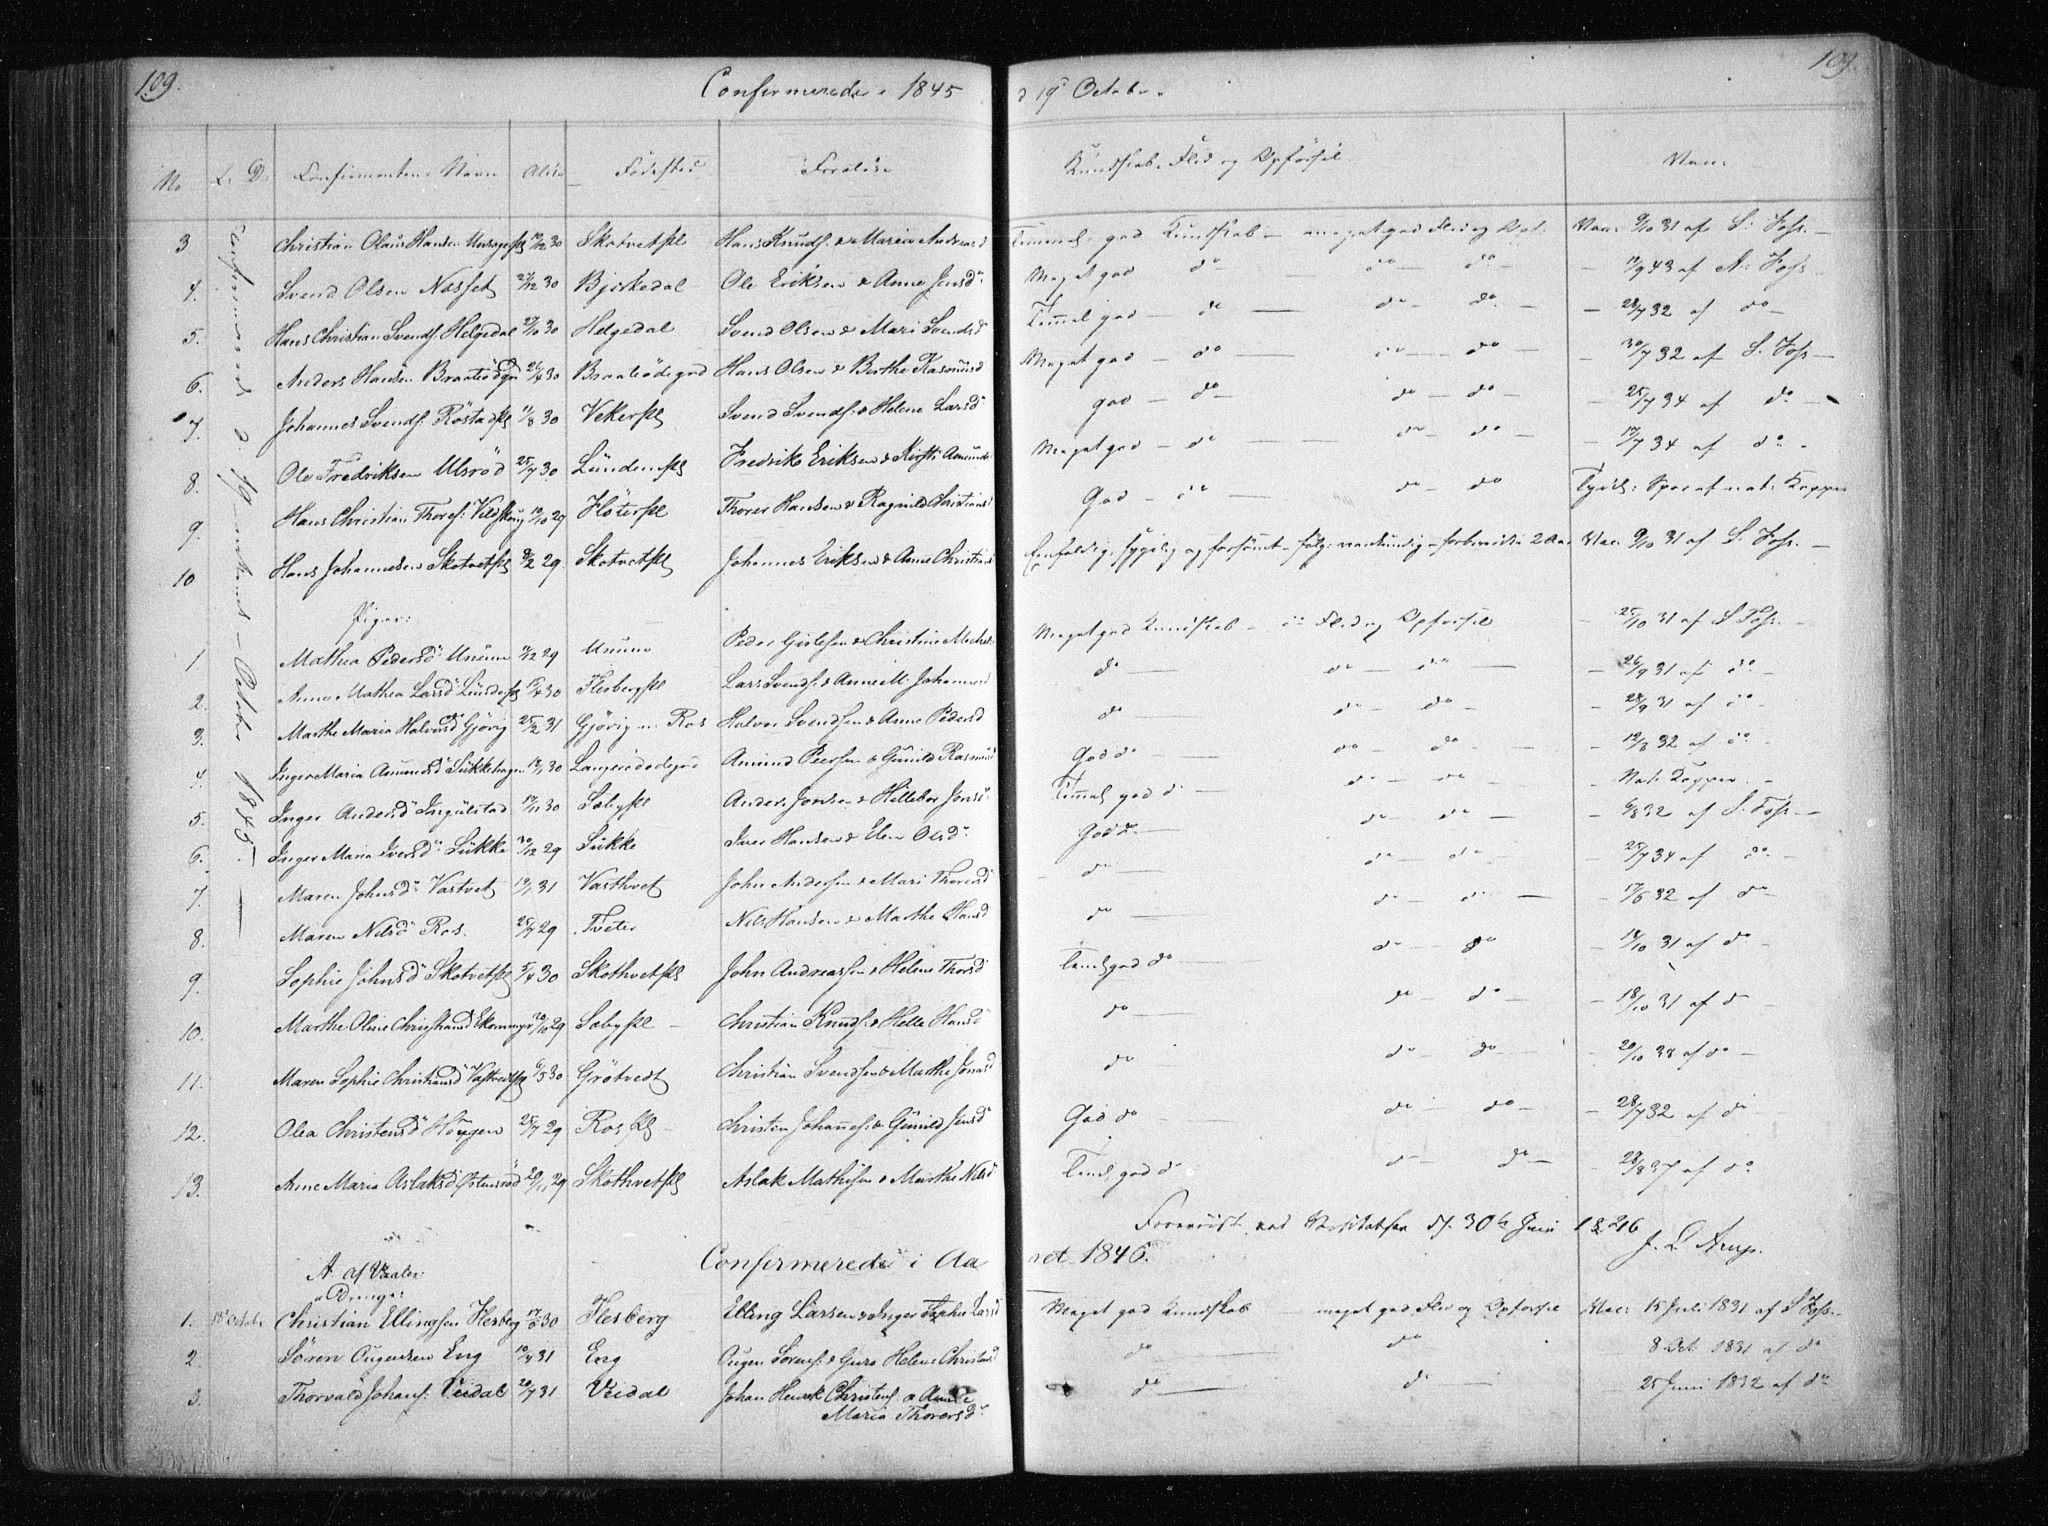 109. Confirmerede i 1845 d 19de October. 109.
No L. D. Confirmantens Navn Alder Fødested Forældre Kundskab, Flid og Opførsel. Vacc:
Confirmerede d. 19 October 1845.
3 Christian Olaus Hansen 30 Skotvetpl Hans Knuds: & Maria Andreasd Temmel. god Kundskab – meget god Flid og Opf. Vac: 9/10 31 af S. Fosz. –
4. Svend Olsen Nosset 27/12 30 Bjerkedal Ole Eriksen & Anne Jensd: Meget god do – do – do – 17/9 43 af A. Fosz –
5. Hans Christian Svends: Helgedal 27/10 30 Helgedal Svend Olsen & Mari Svendsd Temmel god – do – do – do – 28/7 32 af do –
6. Anders Hansen Braateødegd 26/4 30 Braateødegd Hans Olsen & Berthe Rasmusd Meget god – do – do – do – 30/7 32 af S. Fosz –
7. Johannes Svends: Röstadpl 11/8 30 Vekerpl Svend Svends: & Helene Larsd: god – do – do – do – 25/7 34 af do –
8. Ole Fredriksen Ulsröd 25/7 30 Lundenspl Fredrik Eriksen & Kirsti Amunds Meget god – do – do – do – 17/7 34 af do –
9. Hans Christian Thores: Vildskoug 10/10 29 Höterpl Thorer Hansen & Ragnild Christiansd God – do – do – do Tydel: Spor af nat: Kopper
10 Hans Johannesen Skotvetpl 8/2 29 Skotvetpl Johannes Eriksen & Anne Christiansd Eenfoldig, sygelig og forsömt – 2 Aar Vac. 9/10 31 af S. Fosz. –
Piger:
1. Mathea Pedersd: Unum 29 Unum Peder Gislesen & Christine Meget god Kundskab – do Flid og Opførsel – 25/10 31 af S Fosz. –
2. Anne Mathea Larsd: 30 Flesbergpl Lars Svends: & Anne M. Johannesd do – do – do – – 26/9 31 af do –
3. Marthe Maria Halvorsd Gjövig 25/2 31 Gjövig u. Ros Halvor Svendsen & Anne Pedersd do – do – do – – 28/9 31 af do –
4. Inger Maria Amundsd Sukkehagen 30 Langerödødegd Amund Peersen & Gunild Rasmusd God do – do – do – 12/8 32 af do –
5. Inger Andersd Ingulstad 17/11 30 Sobypl Anders Jonsen & Hillebor Jonsd: Temmel. god do – do – do – Nat. Kopper. –
6. Inger Maria Iversd: Sukke 30/12 29 Sukke Iver Hansen & Elen Olsd: God do – do – do – 6/8 32 af S. Fosz. –
7. Maren Johnsd: Vastvet 31 Vasthvet John Andersen & Mari Thoresd do – do – do – – 25/7 34 af do –
8. Maren Nilsd Ros. 25/7 29 Tveter Nils Hansen & Marthe Hansd do – do – do – – 17/6 32 af do
9. Sophie Johnsd Skotvetpl 5/4 30 Skothvetpl John Andreassen & Helene Thorsd god do – do – do – 18/10 31 af do –
10. Marthe Oline Christiansd 20/10 29 Sobypl – Christian Knuds: & Helle Hansd do – do – do – – 18/10 31 af d –
11. Maren Sophie Christiansd Vastvedtpl 6/5 30 Grötvedt Christian Svendsen & Marthe Jonasd do – do – do – – 20/10 38 af do –
12. Olea Christensd: Höugen 25/7 29 Ros pl – Christen Johannes: & Gunild Jensd God do – do – do – – 28/7 32 af do
13. Anne Maria Aslaksd: Östenröd 20/11 29 Skothvetpl Aslak Mathisen & Marthe Nilsd Temel. god do – do – do – – 28/8 37 af do
Foreviist ved Visitatsen d. 30te Juni 1846 J. L. Arup.
Confirmerede i Aaret 1846.
A af Vaaler:
Drenge:
1. 18 Octobr Christian Ellingsen Flesberg 30 Flesberg Elling Larsen & Inger Sophie Larsd Meget god Kundskab – meget god Flid og Opførsel Vac: 15 Juli 1831 af S Fosz.
2. Sören Ougensen Eng 10/4 31 Eng Ougen Sörens: & Guro Helene Christensd do – do 8 Oct 1831 af do
3. Thorvald Johans: Veidal 20/7 31 Veidal Johan Henrik Christens: & Anne
Maria Thorersd: do – do – 25 Juni 1832 af do